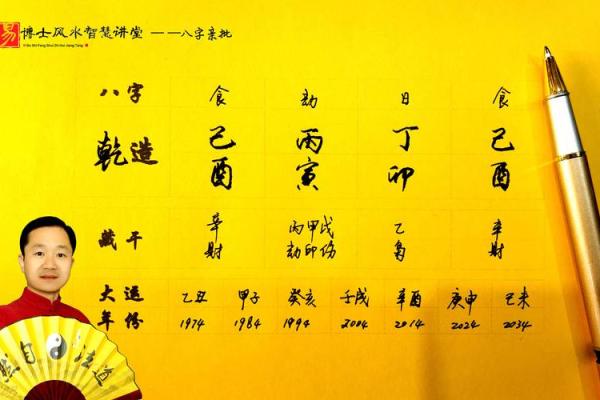 易 博士风水智慧讲堂 ——八字亲批
八字 食 劫 日 食
乾造 己 丙 丁 己
酉 寅 卯 酉
藏干 辛 丙甲戊 乙 辛
财 劫印伤 枭 财
大运 乙丑 甲子 癸亥 壬戌 辛酉 庚申 己未
年份 1974 1984 1994 2004 2014 2024 2034
道法自然